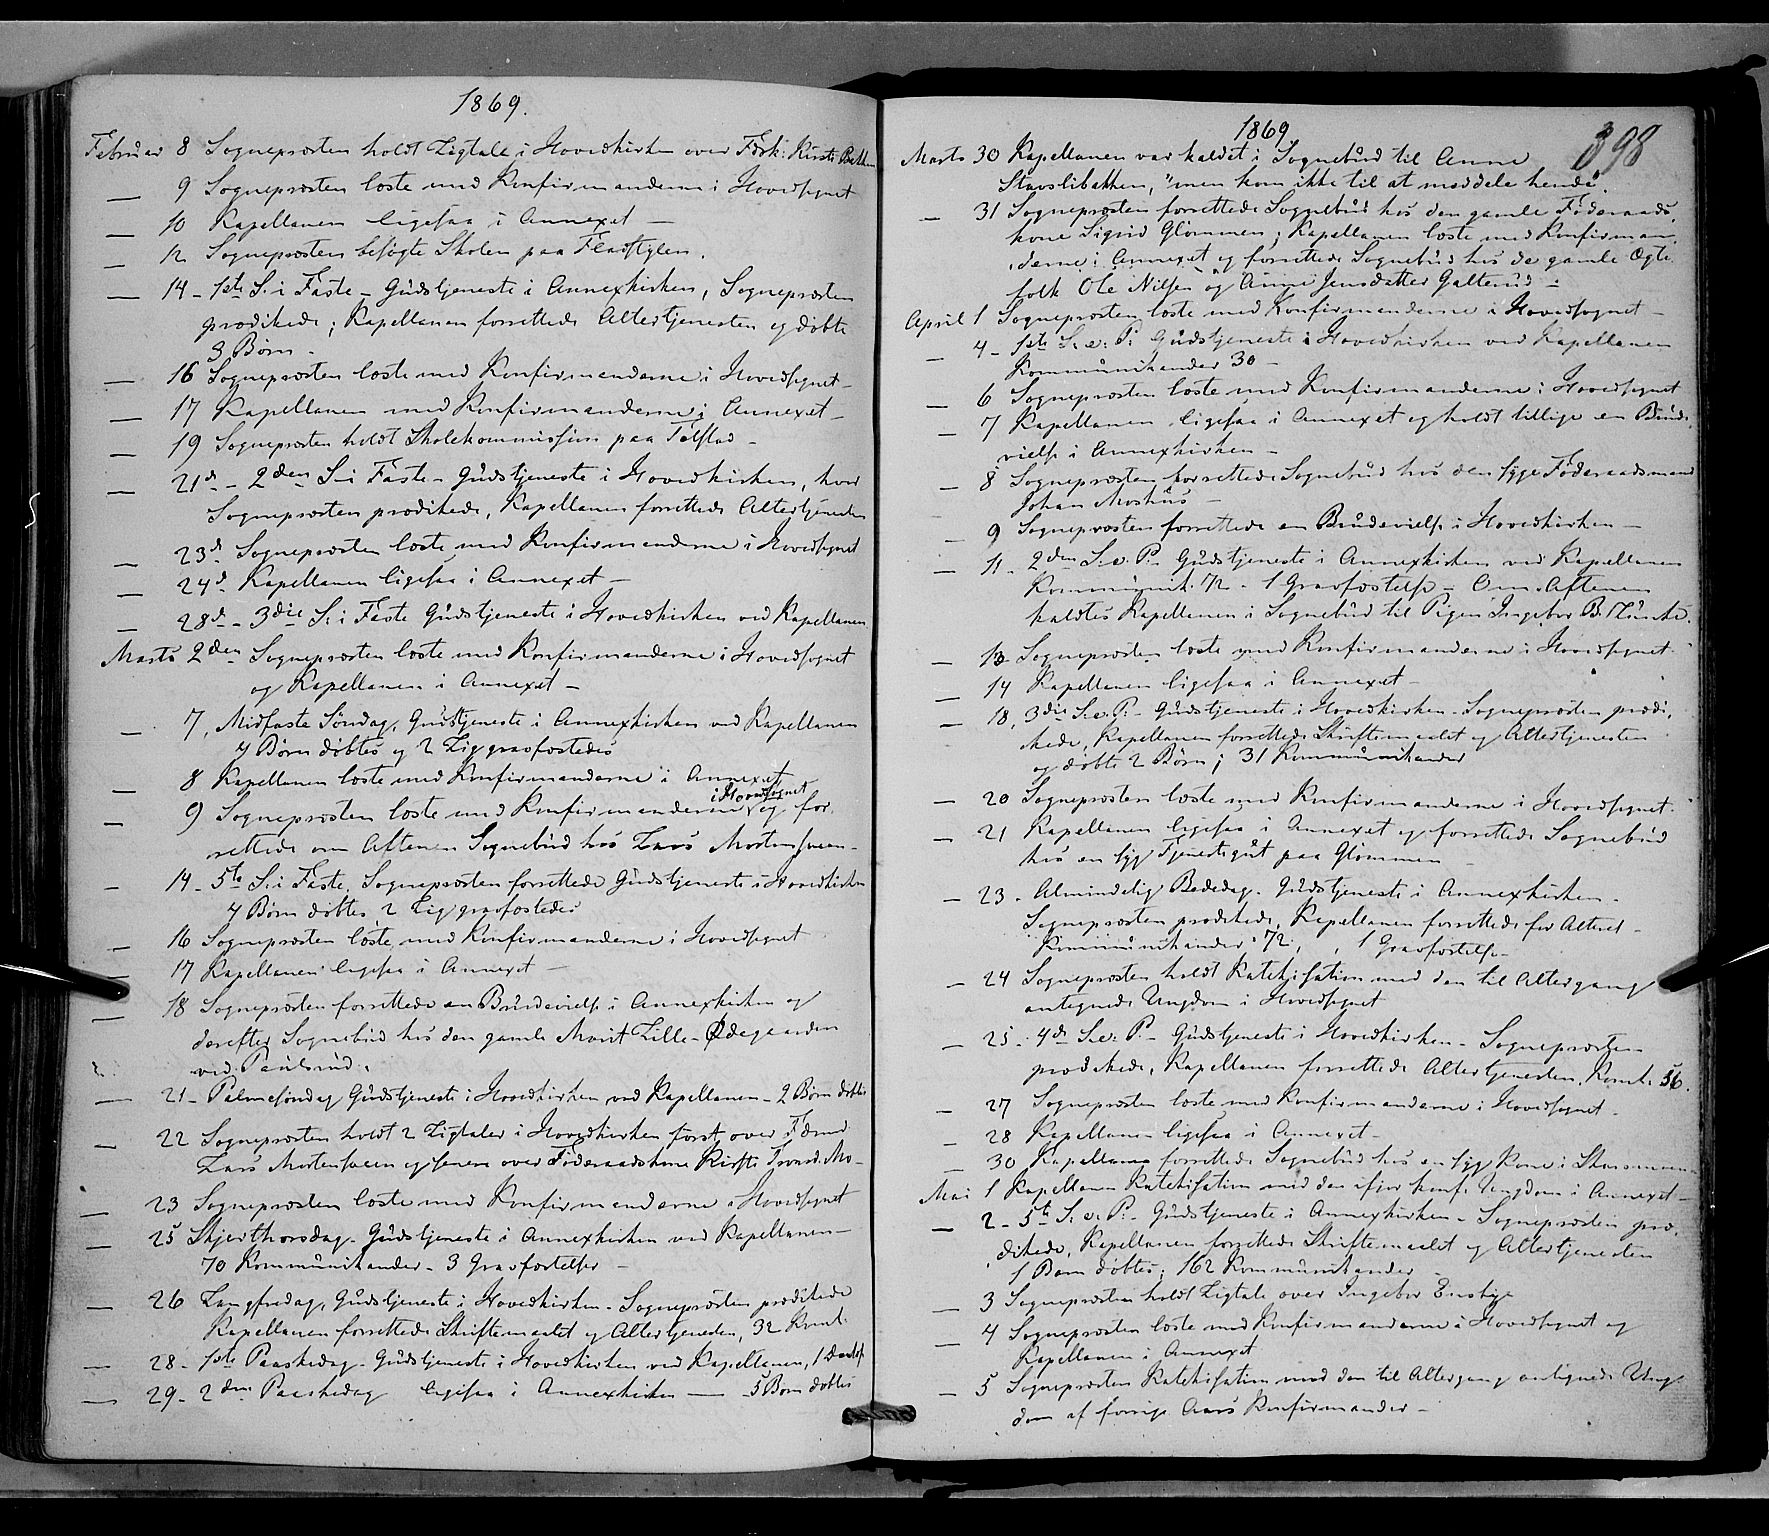 1869.
Februar 8 Sognepræsten holdt Ligtale i Hovedkirken over Kirsti
— 9 Sognepræsten læste med Konfirmanderne i Hovedsognet
— 10 Kapellanen ligesaa i Annexet —
— 12 Sognepræsten besøgte Skolen paa
— 14 - 1ste S. i Faste - Gudstjeneste i Annexkirken, Sognepræsten
prædikede; Kapellanen forrettede Altertjenesten og døbte
3 Børn -
— 16 Sognepræsten læste med Konfirmanderne i Hovedsognet -
— 17 Kapellanen med Konfirmanderne i Annexet -
— 19 Sognepræsten holdt Skolekommission paa Tolstad -
— 21d - 2den S. i Faste - Gudstjeneste i Hovedkirken, hvor
Sognepræsten prædikede, Kapellanen forrettede Altertjenesten
— 23d Sognepræsten læste med Konfirmanderne i Hovedsognet
— 24d Kapellanen ligesaa i Annexet —
— 28d - 3die S. i Faste Gudstjeneste i Hovedkirken ved Kapellanen
Marts 2den Sognepræsten læste med Konfirmanderne i Hovedsognet
og Kapellanen i Annexet —
— 7, Midfaste Søndag, Gudstjeneste i Annexkirken ved Kapellanen
4 Børn døbtes og 2 Lig gravfæstedes
— 8 Kapellanen læste med Konfirmanderne i Annexet
— 9 Sognepræsten læste med Konfirmanderne i Hovedsognet og for-
rettede om Aftenen Sognebud hos Lars Mortensveen -
— 14 - 5te S. i Faste, Sognepræsten forrettede Gudstjeneste i Hovedkirken
4 Børn døbtes, 2 Lig gravfæstedes
— 16 Sognepræsten læste med Konfirmanderne i Hovedsognet
— 17 Kapellanen ligesaa i Annexet —
— 18 Sognepræsten forrettede en Brudevielse i Annexkirken og
derefter Sognebud hos den gamle Marit Lille-Ødegaarden
ved Paulsrud.
— 21 - Palmesøndag Gudstjeneste i Hovedkirken ved Kapellanen - 2 Børn døbtes
— 22 Sognepræsten holdt 2 Ligtaler i Hovedkirken først over
Lars Mortensveen og senere over Føderaadskone Kirsti
— 23 Sognepræsten læste med Konfirmanderne i Hovedsognet
— 25 Skjærthorsdag - Gudstjeneste i Annexkirken ved Kapellanen —
70 Kommunikander - 3 Gravfæstelser -
— 26 Langfredag, Gudstjeneste i Hovedkirken - Sognepræsten prædikede
Kapellanen forrettede Skriftemaalet og Altertjenesten, 32 Komt.
— 28 - 1ste Paaskedag - Gudstjeneste i Hovedkirken ved Kapellanen, 1
— 29 - 2den Paaskedag ligesaa i Annexkirken — 5 Børn døbtes
1869
398
Marts 30 Kapellanen var kaldet i Sognebud til Anne
Stavslibakken, men kom ikke til at meddele hende.
— 31 Sognepræsten forrettede Sognebud hos den gamle Føderaads-
kone Sigrid Glømmen; Kapellanen læste med Konfirman-
derne i Annexet og forrettede Sognebud hos de gamle Ægte-
folk Ole Nilsen og Anne Jensdatter Galterud -
April 1 Sognepræsten læste med Konfirmanderne i Hovedsognet -
— 4 - 1ste S. e. P. Gudstjeneste i Hovedkirken ved Kapellanen
Kommunikander 30 —
— 6 Sognepræsten læste med Konfirmanderne i Hovedsognet
— 7 Kapellanen ligesaa i Annexet og holdt tillige en Brude-
vielse i Annexkirken -
— 8 Sognepræsten forrettede Sognebud hos den syge Føderaadsmand
Johan Moshuus —
— 9 Sognepræsten forrettede en Brudevielse i Hovedkirken —
— 11 - 2den S. e. P. - Gudstjeneste i Annexkirken ved Kapellanen
Kommunik. 72 - 1 Gravfæstelse - Om Aftenen
kaldtes Kapellanen i Sognebud til Pigen Ingebor
— 13 Sognepræsten læste med Konfirmanderne i Hovedsognet.
— 14 Kapellanen ligesaa i Annexet -
— 18, 3die S. e. P. - Gudstjeneste i Hovedkirken - Sognepræsten prædi-
kede, Kapellanen forrettede Skriftemaalet og Altertjenesten
og døbte 2 Børn; 31 Kommunikander
— 20 Sognepræsten læste med Konfirmanderne i Hovedsognet.
— 21 Kapellanen ligesaa i Annexet og forrettede Sognebud
hos en syg Tjenestegut paa Glømmen —
— 23 - Almindelig Bededag - Gudstjeneste i Annexkirken -
Sognepræsten prædikede, Kapellanen forrettede for Alteret -
Kommunikander 72, 1 Gravfæstelse -
— 24 Sognepræsten holdt Katekisation med den til Altergang
antegnede Ungdom i Hovedsognet
— 25 - 4de S. e. P. - Gudstjeneste i Hovedkirken - Sognepræsten
prædikede, Kapellanen forrettede Altertjenesten, Komt. 56.
— 27 Sognepræsten læste med Konfirmanderne i Hovedsognet -
— 28 Kapellanen ligesaa i Annexet -
— 30 Kapellanen forrettede Sognebud hos en syg Kone i
Mai 1 Kapellanen Katekisation med den ifjor konf. Ungdom i Annexet -
— 2 - 5te S. e. P. - Gudstjeneste i Annexkirken - Sognepræsten præ-
dikede, Kapellanen forrettede Skriftemaalet og Altertjenesten
1 Barn døbtes; 162 Kommunikander -
— 3 Sognepræsten holdt Ligtale over Ingebor
— 4 Sognepræsten læste med Konfirmanderne i Hovedsognet og
Kapellanen i Annexet
— 5 Sognepræsten Katekisation med den til Altergang antegnede Ung-
dom af forrige Aars Konfirmander -